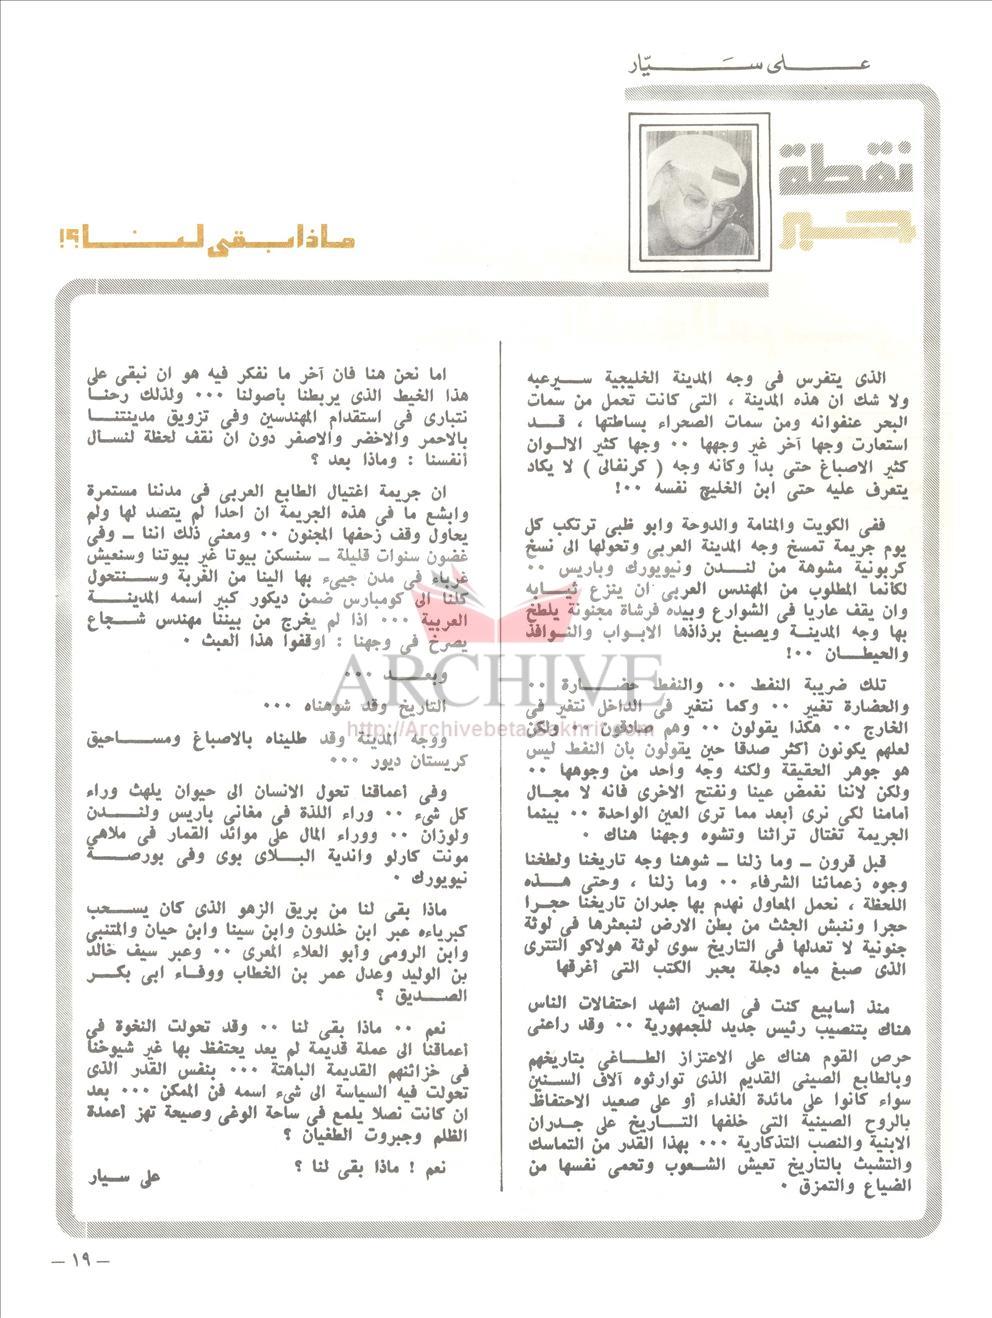 على سيّار
نقطة
حبر
ماذا بقى لنا ؟!
الذى يتفرس فى وجه المدينة الخليجية سيرعبه
ولا شك ان هذه المدينة ، التى كانت تحمل من سمات
البحر عنفوانه ومن سمات الصحراء بساطتها ، قد
استعارت وجها آخر غير وجهها ٠٠ وجها كثير الالوان
كثير الاصباغ حتى بدأ وكأنه وجه ( كرنفالى ) لا يكاد
يتعرف عليه حتى ابن الخليج نفسه ٠٠!
ففى الكويت والمنامة والدوحة وابو ظبى ترتكب كل
يوم جريمة تمسخ وجه المدينة العربى وتحولها الى نسخ
كربونية مشوهة من لندن ونيويورك وباريس ٠٠
لكأنما المطلوب من المهندس العربى أن ينزع ثيابه
وان يقف عاريا فى الشوارع وبيده فرشاة مجنونة يلطخ
بها وجه المدينة ويصبغ برذاذها الابواب والنوافذ
والحيطان ٠٠!
تلك ضريبة النفط ٠٠ والنفط حضارة ٠٠
والحضارة تغيير ٠٠ وكما نتغير فى الداخل نتغير فى
الخارج ٠٠ هكذا يقولون ٠٠ وهم صادقون ٠٠ ولكن
لعلهم يكونون أكثر صدقا حين يقولون بأن النفط ليس
هو جوهر الحقيقة ولكنه وجه واحد من وجوهها ٠٠
ولكن لاننا نغمض عينا ونفتح الاخرى فانه لا مجال
أمامنا لكى نرى أبعد مما ترى العين الواحدة ٠٠ بينما
الجريمة تغتال تراثنا وتشوه وجهنا هناك ٠
قبل قرون ــ وما زلنا ــ شوهنا وجه تاريخنا ولطخنا
وجوه زعمائنا الشرفاء ٠٠ وما زلنا ، وحتى هذه
اللحظة ، نحمل المعاول نهدم بها جدران تاريخنا حجرا
حجرا وننبش الجثث من بطن الارض لنبعثرها فى لوثة
جنونية لا تعدلها فى التاريخ سوى لوثة هولاكو التترى
الذى صبغ مياه دجلة بحبر الكتب التى أغرقها
منذ أسابيع كنت فى الصين أشهد احتفالات الناس
هناك بتنصيب رئيس جديد للجمهورية ٠٠ وقد راعنى
حرص القوم هناك على الاعتزاز الطاغى بتاريخهم
وبالطابع الصينى القديم الذى توارثوه آلاف السنين
سواء كانوا على مائدة الغداء أو على صعيد الاحتفاظ
بالروح الصينية التى خلفها التاريخ على جدران
الابنية والنصب التذكارية ٠٠٠ بهذا القدر من التماسك
والتشبث بالتاريخ تعيش الشعوب وتحمى نفسها من
الضياع والتمزق ٠
اما نحن هنا فان آخر ما نفكر فيه هو ان نبقى على
هذا الخيط الذى يربطنا بأصولنا ٠٠٠ ولذلك رحنا
نتبارى فى استقدام المهندسين وفى تزويق مدينتنا
بالاحمر والاخضر والاصفر دون ان نقف لحظة لنسأل
أنفسنا : وماذا بعد ؟
ان جريمة اغتيال الطابع العربى فى مدننا مستمرة
وابشع ما فى هذه الجريمة ان احدا لم يتصد لها ولم
يحاول وقف زحفها المجنون ٠٠ ومعنى ذلك اننا ــ وفى
غضون سنوات قليلة ــ سنسكن بيوتا غير بيوتنا وسنعيش
غرباء فى مدن جيىء بها الينا من الغربة وسنتحول
كلنا الى كومبارس ضمن ديكور كبير اسمه المدينة
العربية ٠٠٠ اذا لم يخرج من بيننا مهندس شجاع
يصرخ فى وجهنا : اوقفوا هذا العبث ٠
وبعد ٠٠٠
التاريخ وقد شوهناه ٠٠٠
ووجه المدينة وقد طليناه بالاصباغ ومساحيق
كريستان ديور ٠٠٠
وفى أعماقنا تحول الانسان الى حيوان يلهث وراء
كل شىء ٠٠ وراء اللذة فى مغانى باريس ولندن
ولوزان ٠٠ ووراء المال على موائد القمار فى ملاهى
مونت كارلو واندية البلاى بوى وفى بورصة
نيويورك ٠
ماذا بقى لنا من بريق الزهو الذى كان يسحب
كبرياءه عبر ابن خلدون وابن سينا وابن حيان والمتنبى
وابن الرومى وأبو العلاء المعرى ٠٠ وعبر سيف خالد
بن الوليد وعدل عمر بن الخطاب ووفاء ابى بكر
الصديق ؟
نعم ٠٠ ماذا بقى لنا ٠٠ وقد تحولت النخوة فى
أعماقنا الى عملة قديمة لم يعد يحتفظ بها غير شيوخنا
فى خزائنهم القديمة الباهتة ٠٠٠ بنفس القدر الذى
تحولت فيه السياسة الى شىء اسمه فن الممكن ٠٠٠ بعد
ان كانت نصلا يلمع فى ساحة الوغى وصيحة تهز أعمدة
الظلم وجبروت الطغيان ؟
نعم ! ماذا بقى لنا ؟
على سيار
ARCHIVE
http://Archivebeta.Sakhrit.com
ــ ١٩ ــ